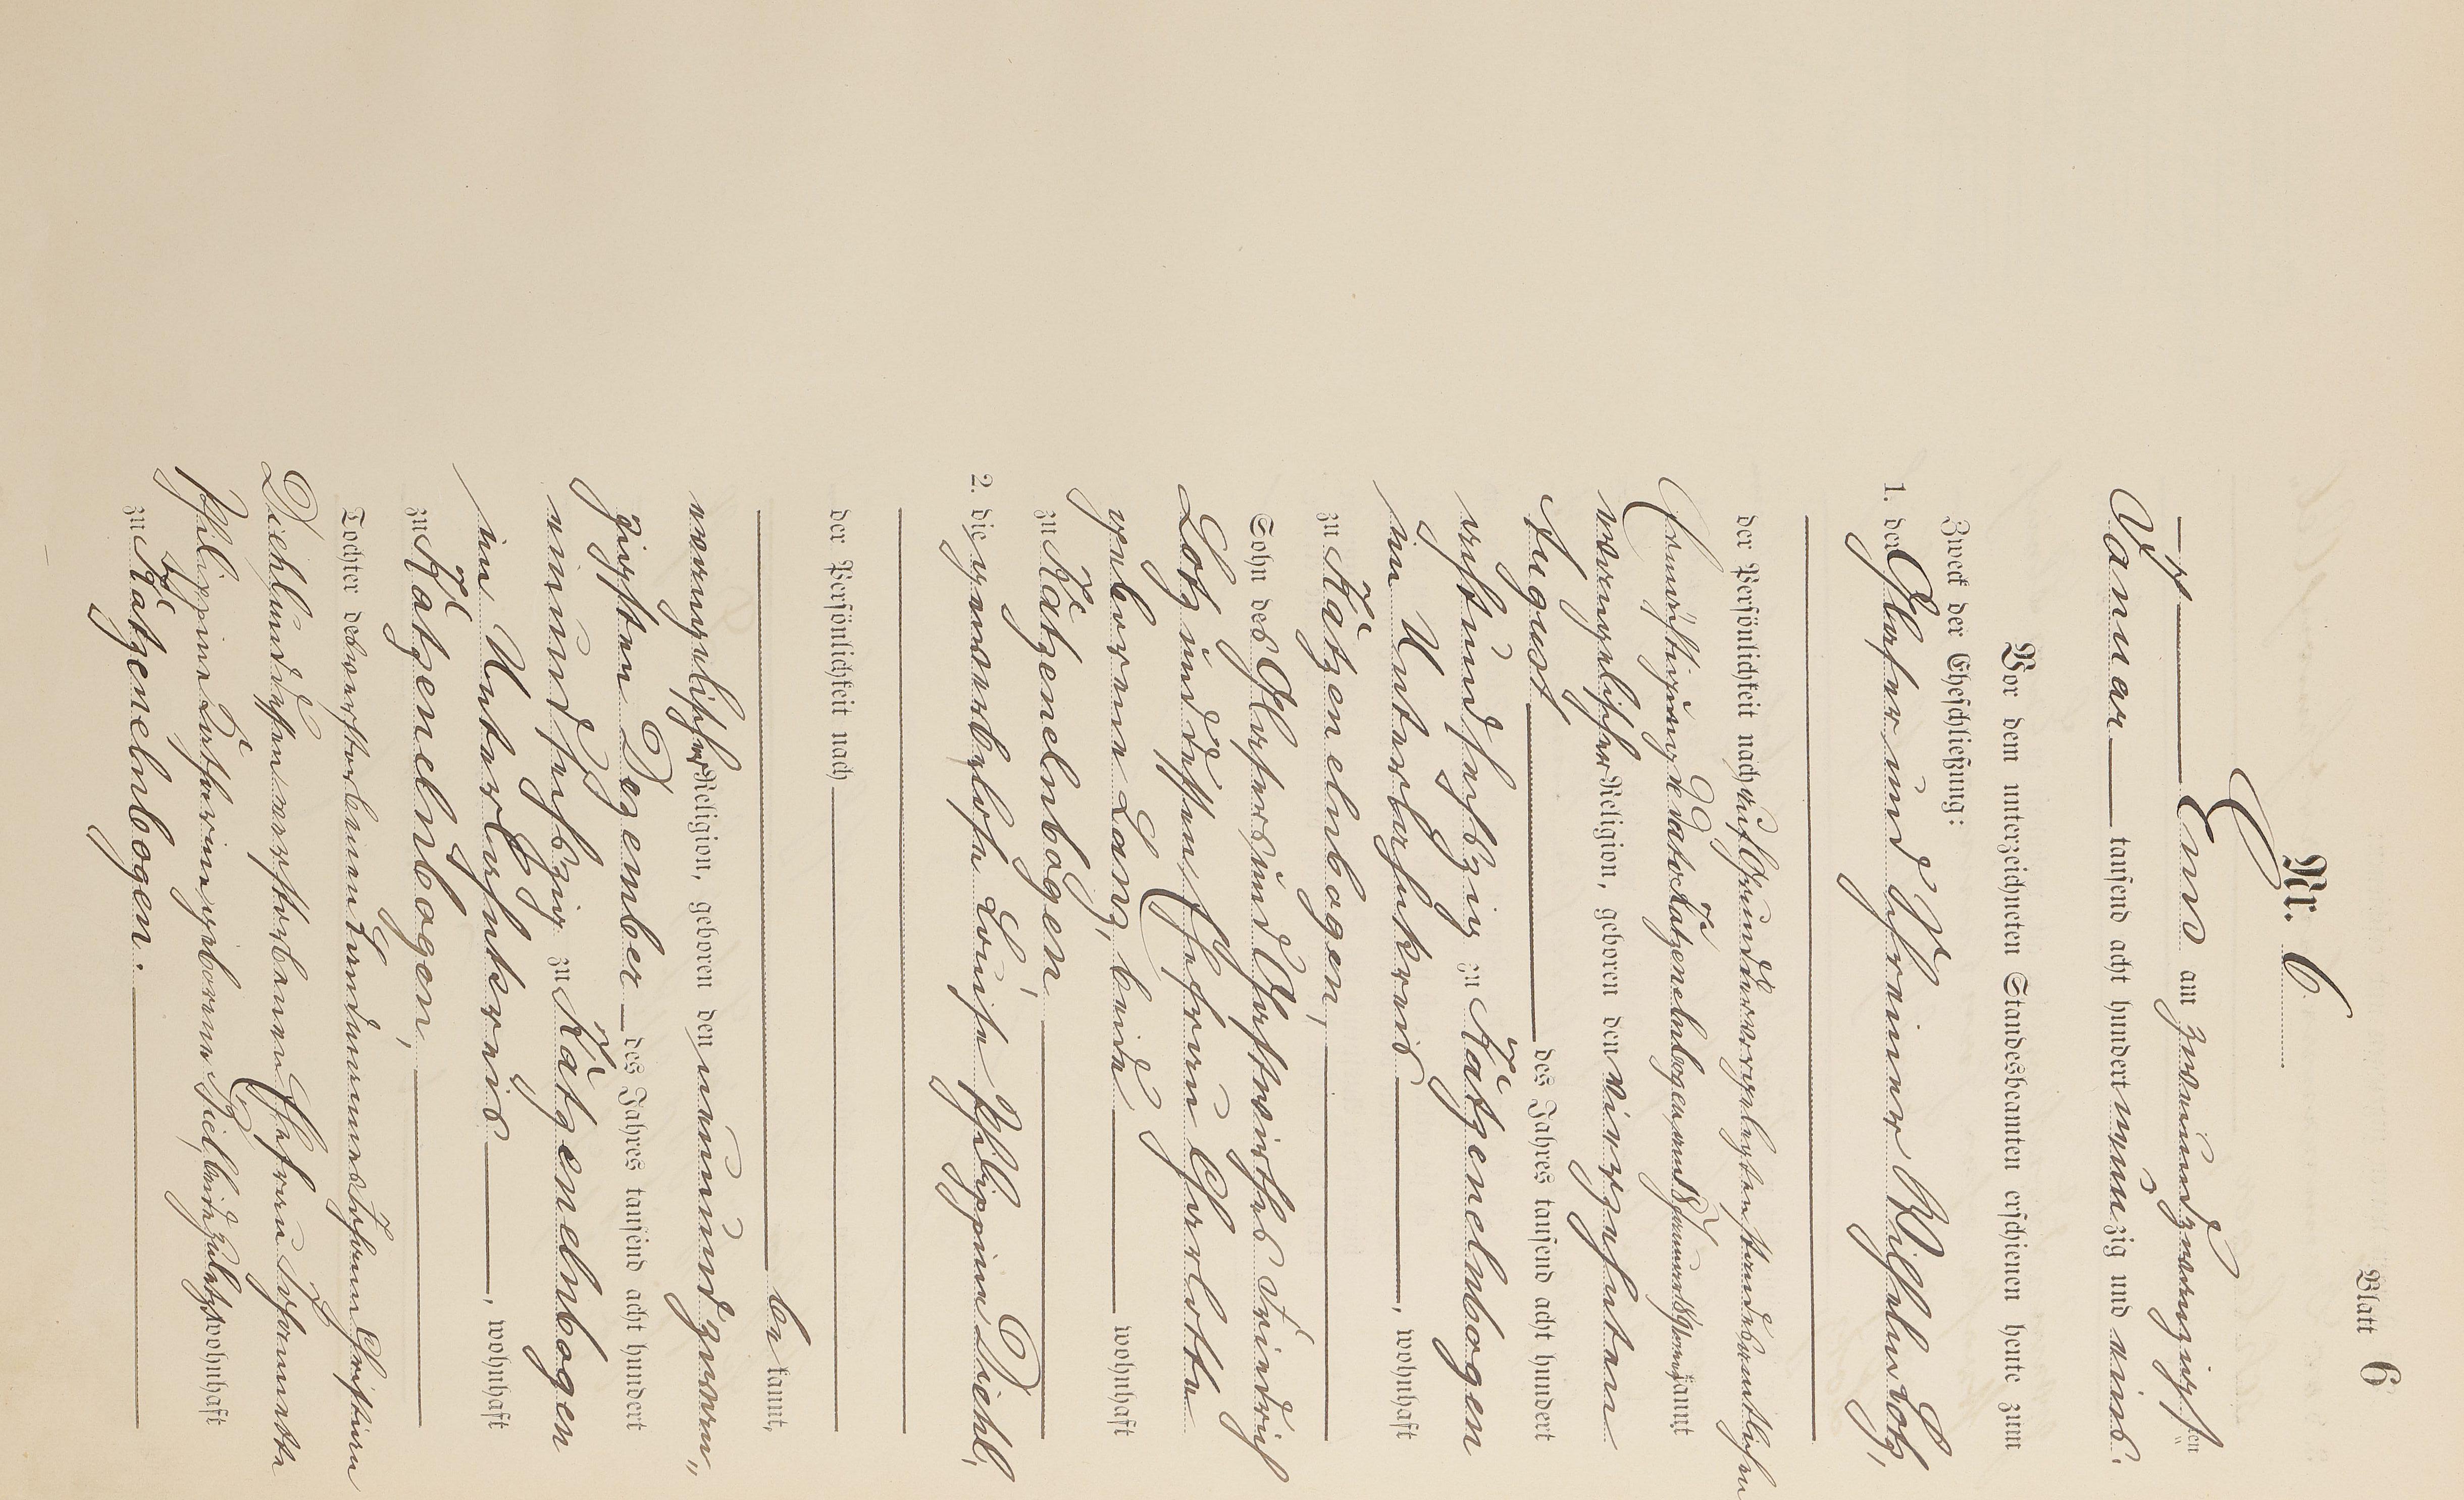 Blatt 6
Nr. 6.
Ems am zweiundzwanzigsten
Januar tausend acht hundert neunzig und eins.
Vor dem unterzeichneten Standesbeamten erschienen heute zum
Zweck der Eheschließung:
1. der Glaser und Schreiner Wilhelm Lotz,
der Persönlichkeit nach auf Grund der vorgelegten standesamtlichen
Bescheinigung de dato Katzenelnbogen, am 18 Januar 1891 bekannt
evangelischer Religion, geboren den vierzehnten
August des Jahres tausend acht hundert
sechszig zu Katzenelnbogen
im Unterlahnkreis, wohnhaft
zu Katzenelnbogen,
Sohn des Glasers und Gastwirthes Friedrich
Lotz und dessen Ehefrau Charlotte
geborene Lang, beide wohnhaft
zu Katzenelnbogen,
2. die gewerblose Louise Philippine Diehl,
der Persönlichkeit nach
be kannt,
evangelischer Religion, geboren den neunundzwan"
zigsten Dezember des Jahres tausend acht hundert
neunundsechszig zu Katzenelnbogen
im Unterlahnkreis, wohnhaft
zu Katzenelnbogen,
Tochter des verstorbenen Johann Christian
Diehl und dessen verstorbenen Ehefrau Johannette
Philippine Katharine geborene beide zuletzt wohnhaft
zu Katzenelnbogen.